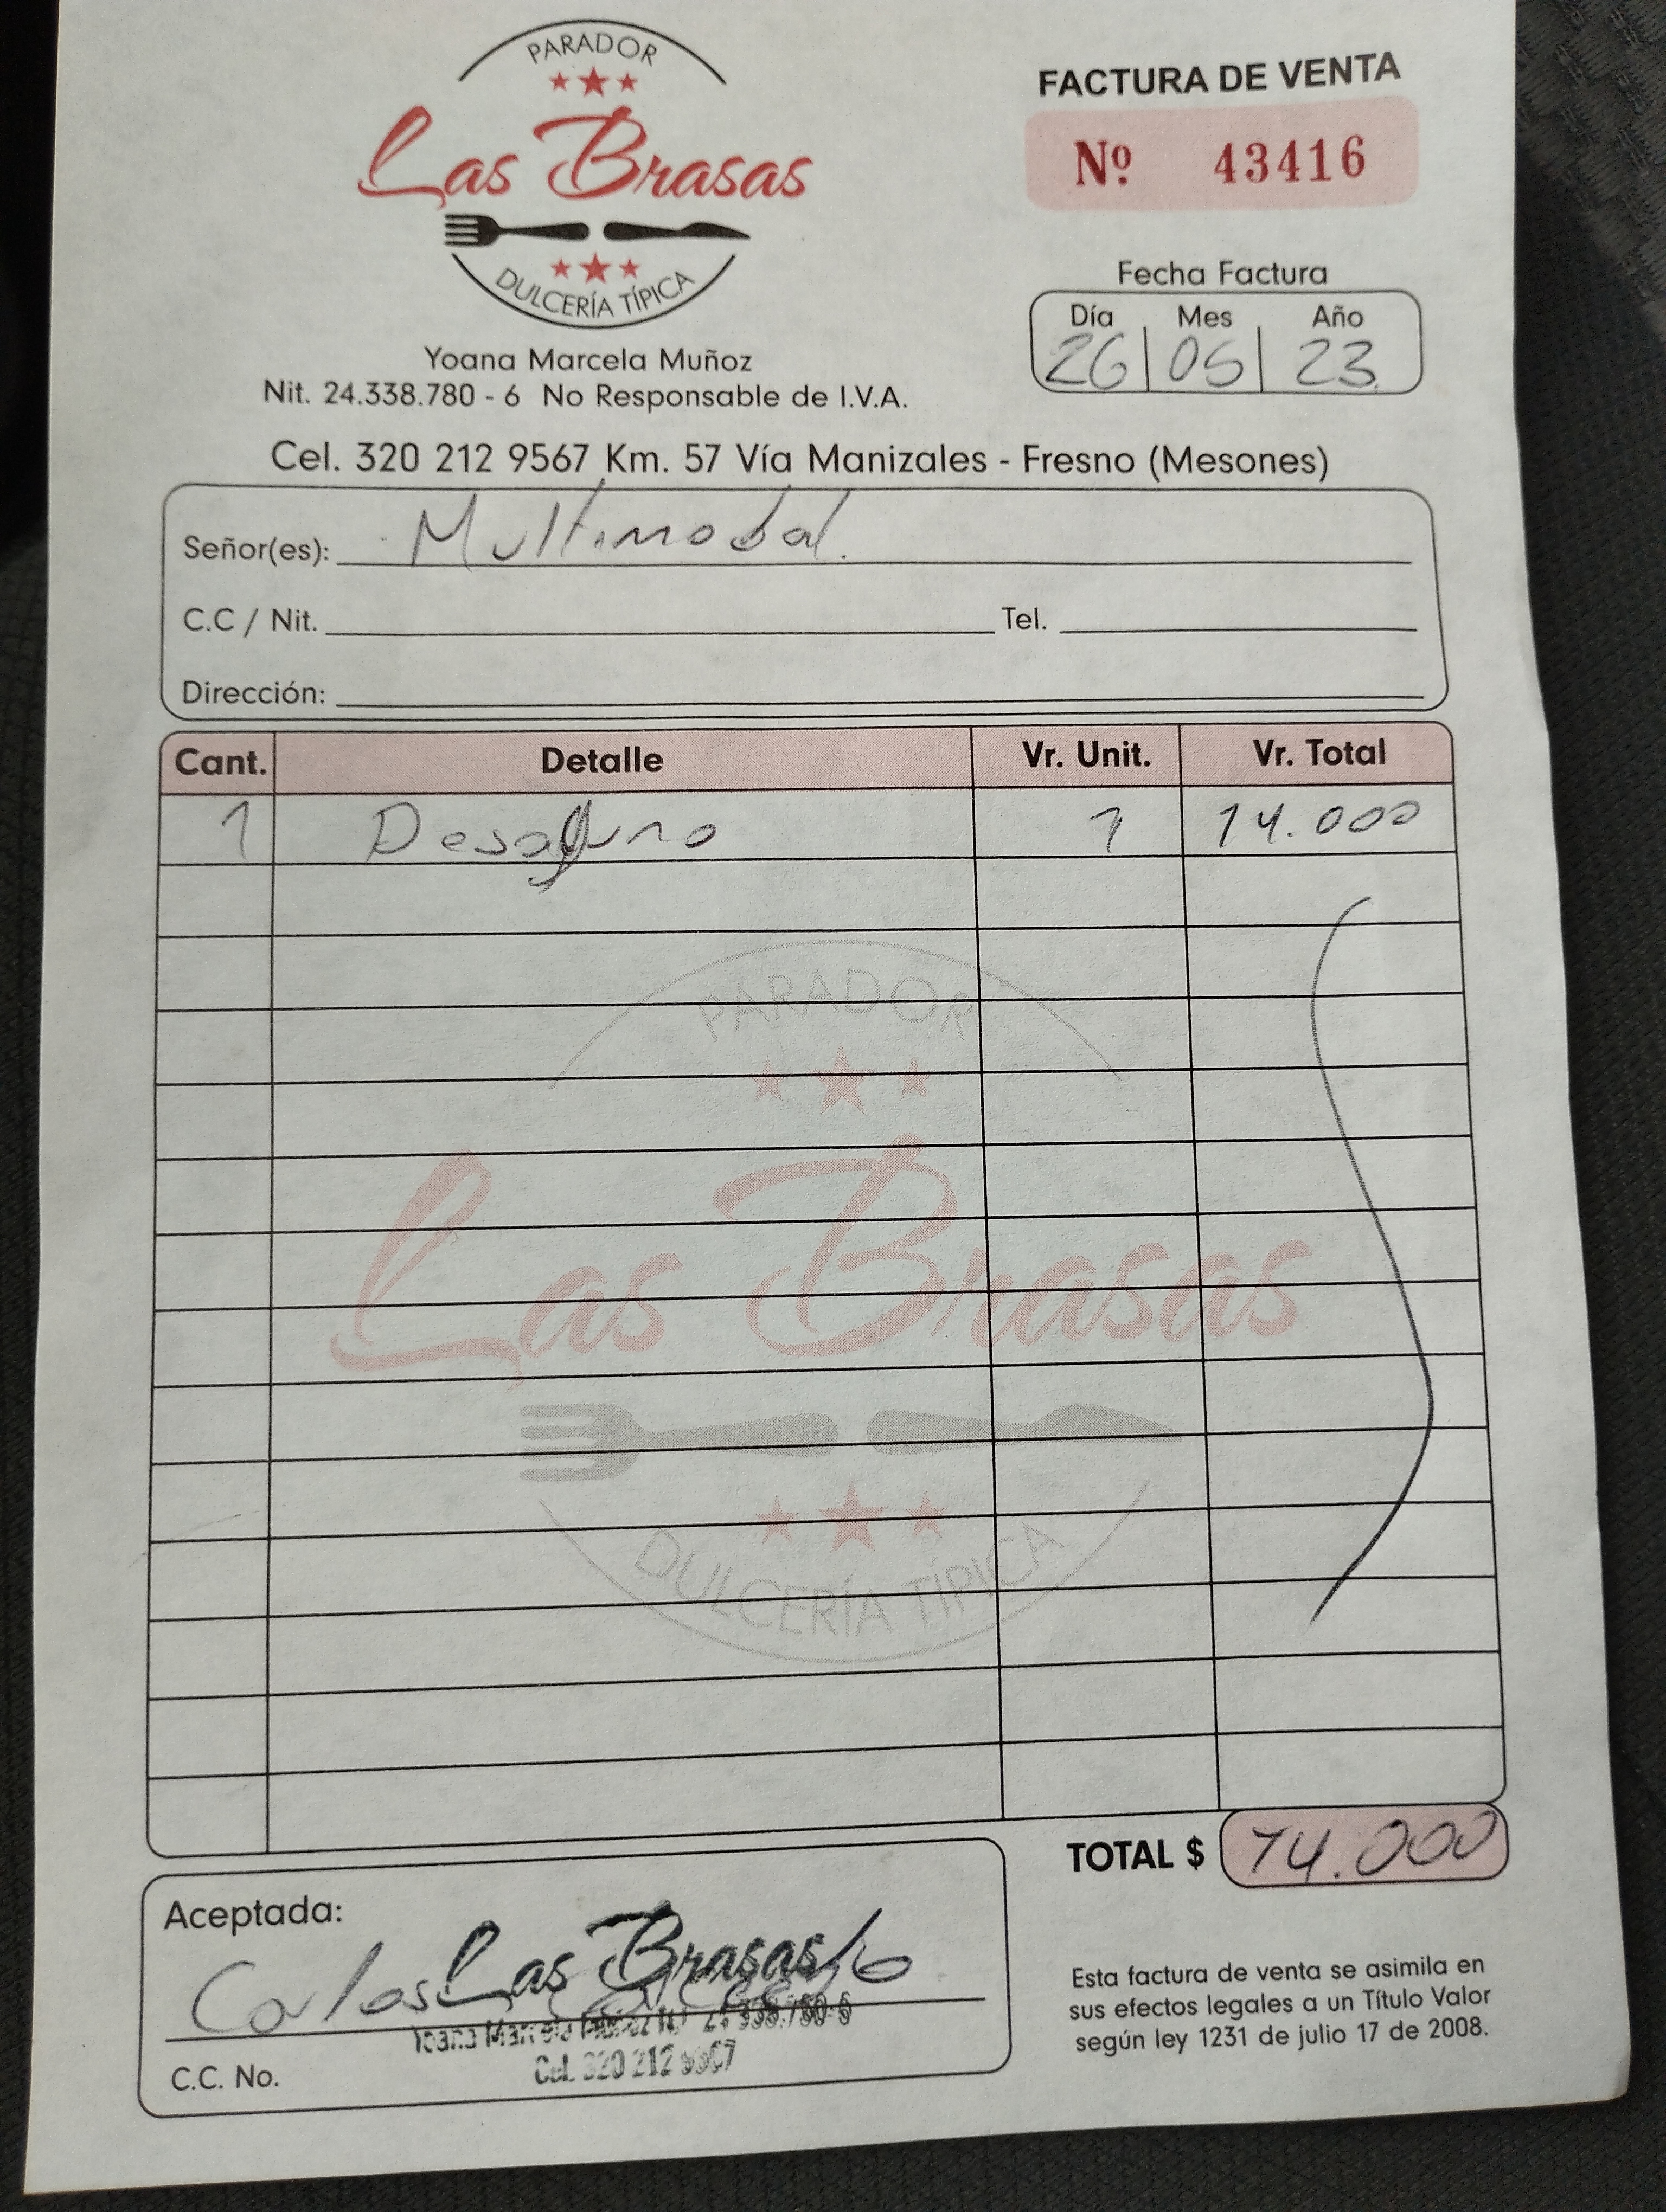 PARADOR
Las Brasas
DULCERÍA TÍPICA
FACTURA DE VENTA
Nº 43416
Fecha Factura
Día Mes Año
26 05 23
Yoana Marcela Muñoz
Nit. 24.338.780 - 6 No Responsable de I.V.A.
Cel. 320 212 9567 Km. 57 Vía Manizales - Fresno (Mesones)
Señor(es): Multimodal.
C.C / Nit. Tel.
Dirección:
Cant. Detalle Vr. Unit. Vr. Total
1 Desayuno 1 14.000
PARADOR
Las Brasas
DULCERÍA TÍPICA
TOTAL $ 14.000
Aceptada:
Carlos
Las Brasas
24.338.780-6
Cel. 320 212 9567
C.C. No.
Esta factura de venta se asimila en
sus efectos legales a un Título Valor
según ley 1231 de julio 17 de 2008.